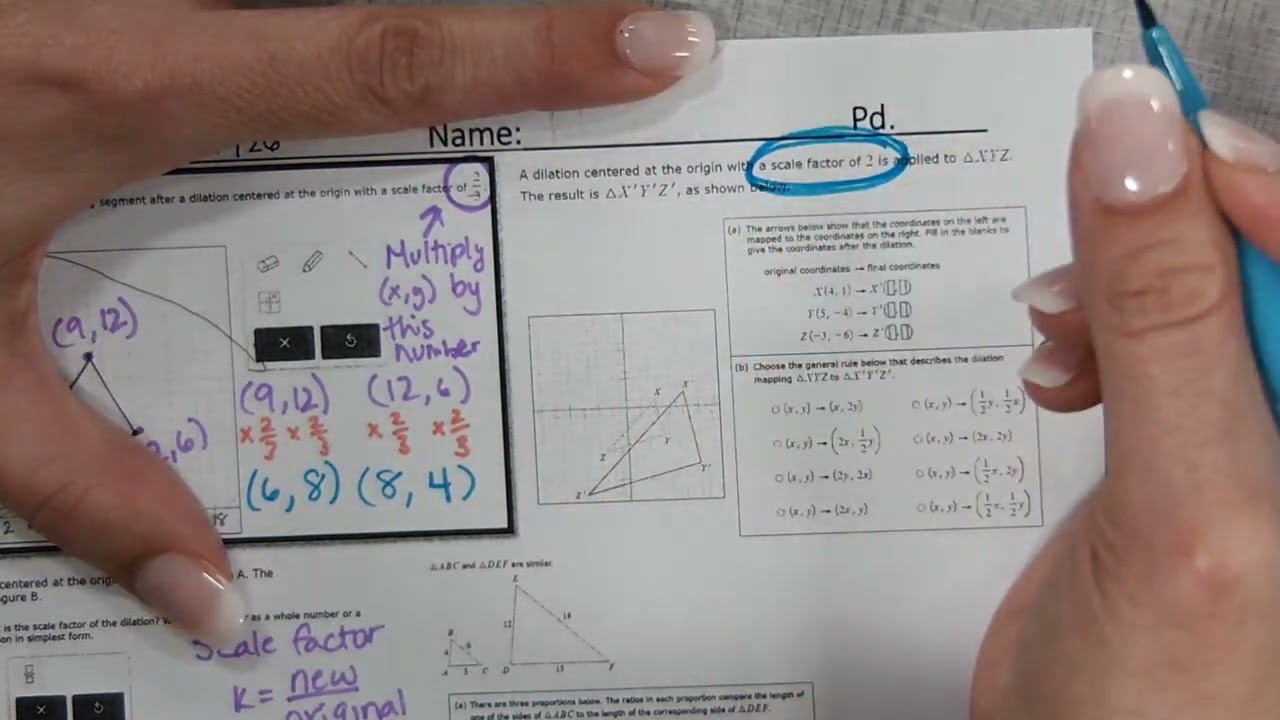 Name:
Pd.
segment after a dilation centered at the origin with a scale factor of 2/3.
Multiply
(x,y) by
this
number
(9,12)
(9,12) (12,6)
× 2/3 × 2/3 × 2/3 × 2/3
(6,8) (8,4)
,6)
18
2
A dilation centered at the origin with a scale factor of 2 is applied to △XYZ.
The result is △X'Y'Z', as shown below.
X X'
Y
Z
Y'
Z'
(a) The arrows below show that the coordinates on the left are
mapped to the coordinates on the right. Fill in the blanks to
give the coordinates after the dilation.
original coordinates → final coordinates
X(4, 1) → X'(▯,▯)
Y(5, −4) → Y'(▯,▯)
Z(−3, −6) → Z'(▯,▯)
(b) Choose the general rule below that describes the dilation
mapping △XYZ to △X'Y'Z'.
○ (x, y) → (x, 2y) ○ (x, y) → (1/2 y, 1/2 x)
○ (x, y) → (2x, 1/2 y) ○ (x, y) → (2x, 2y)
○ (x, y) → (2y, 2x) ○ (x, y) → (1/2 x, 2y)
○ (x, y) → (2x, y) ○ (x, y) → (1/2 x, 1/2 y)
centered at the A. The
gure B.
is the scale factor of the dilation? as a whole number or a
on in simplest form.
Scale factor
K = new
original
△ABC and △DEF are similar.
E
12 18
D 15 F
B
4 6
A 5 C
(a) There are three proportions below. The ratios in each proportion compare the length of
one of the sides of △ABC to the length of the corresponding side of △DEF.